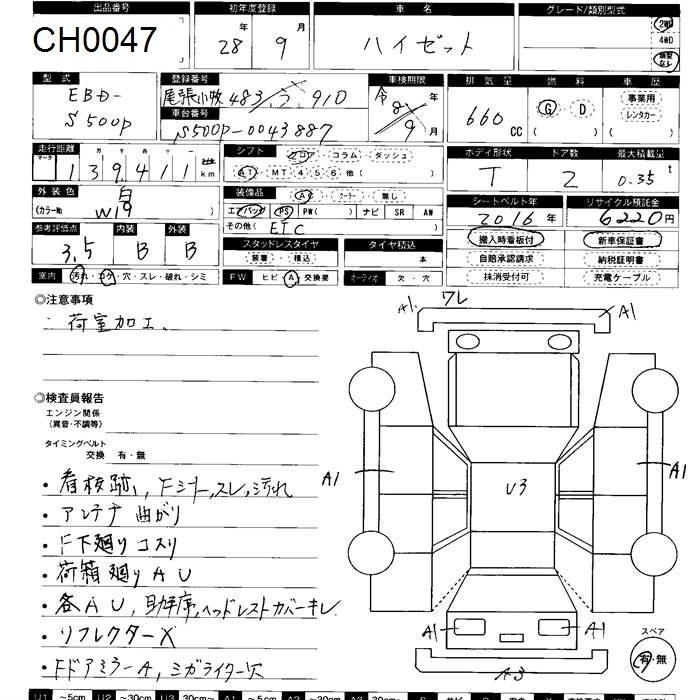 出品番号 初年度登録 車名 グレード/類別型式
CH0047 28年 9月 ハイゼット 2WD
4WD
類型なし
型式 登録番号 車検期限 排気量 燃料 車歴
EBD-
S500P
尾張小牧 483 910
車台番号
S500P-0043887
令8年
9月
660cc
G D
事業用
レンタカー
走行距離 シフト ボディ形状 ドア数 最大積載量
マーク 十万 万 千 百 十 一
139411 km
フロア コラム ダッシュ
AT MT 4 5 6 他( )
T 2 0.35t
外装色 装備品 シートベルト年 リサイクル預託金
白
(カラーNo. W19)
AC クーラー 無し
エアバッグ PS PW( ) ナビ SR AW
その他( ETC )
2016年 6220円
参考評価点 内装 外装
3.5 B B
スタッドレスタイヤ タイヤ積込
装着 積込 本
搬入時看板付 新車保証書
自賠承認請求 納税証明書
抹消受付可 充電ケーブル
室内 汚れ・コゲ・穴・スレ・破れ・シミ
FW ヒビ A 交換要 オーディオ 欠・穴
◎注意事項
・荷室加工、
◎検査員報告
エンジン関係
(異音・不調等)
タイミングベルト
交換 有・無
・看板跡、Fシート、スレ、汚れ
・アンテナ曲がり
・F下廻りコスリ
・荷箱廻りAU
・各AU、助手席、ヘッドレストカバーキレ
・リフレクターX
・FドアミラーA、シガライター欠
A1 ワレ A1
A1 U3 A1
A1 A1
A3
スペア
有・無
U1 ～5cm U2 ～30cm U3 30cm～ A1 ～5cm A2 ～30cm A3 30cm～